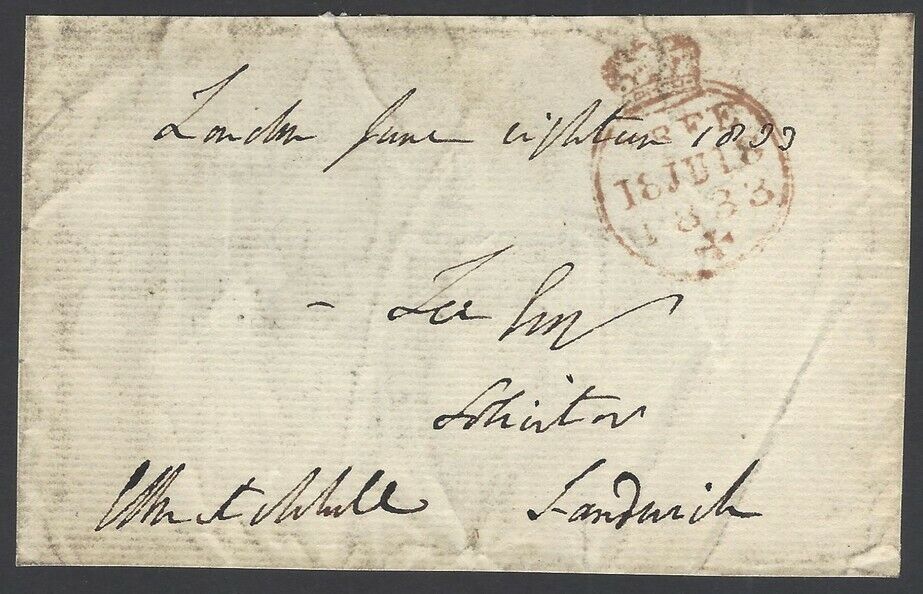 London June eighteen 1833
FREE
18 JU 18
1833
- Lee Esq
Solicitor
Sandwich